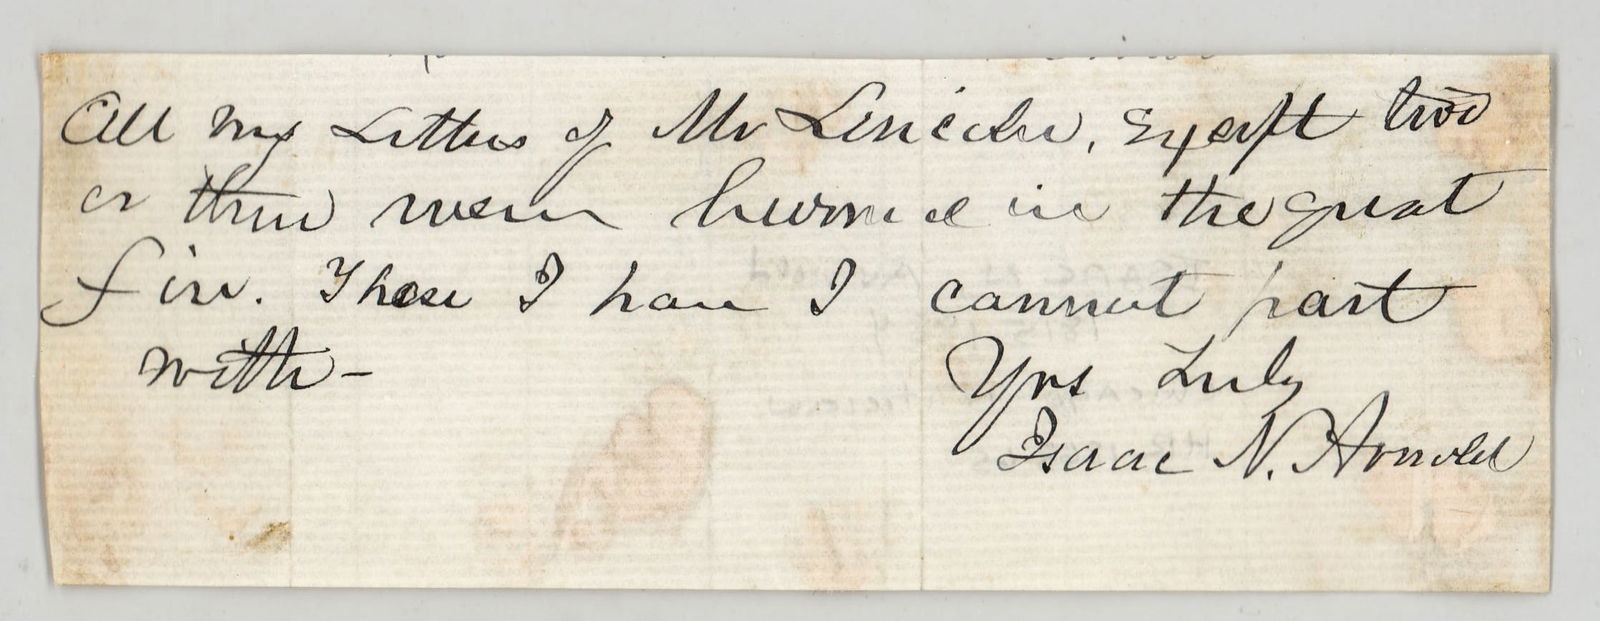 All my Letters of Mr Lincoln, Except two
or three were burned in the great
fire. Those I have I cannot part
with -
Yrs Truly
Isaac N. Arnold